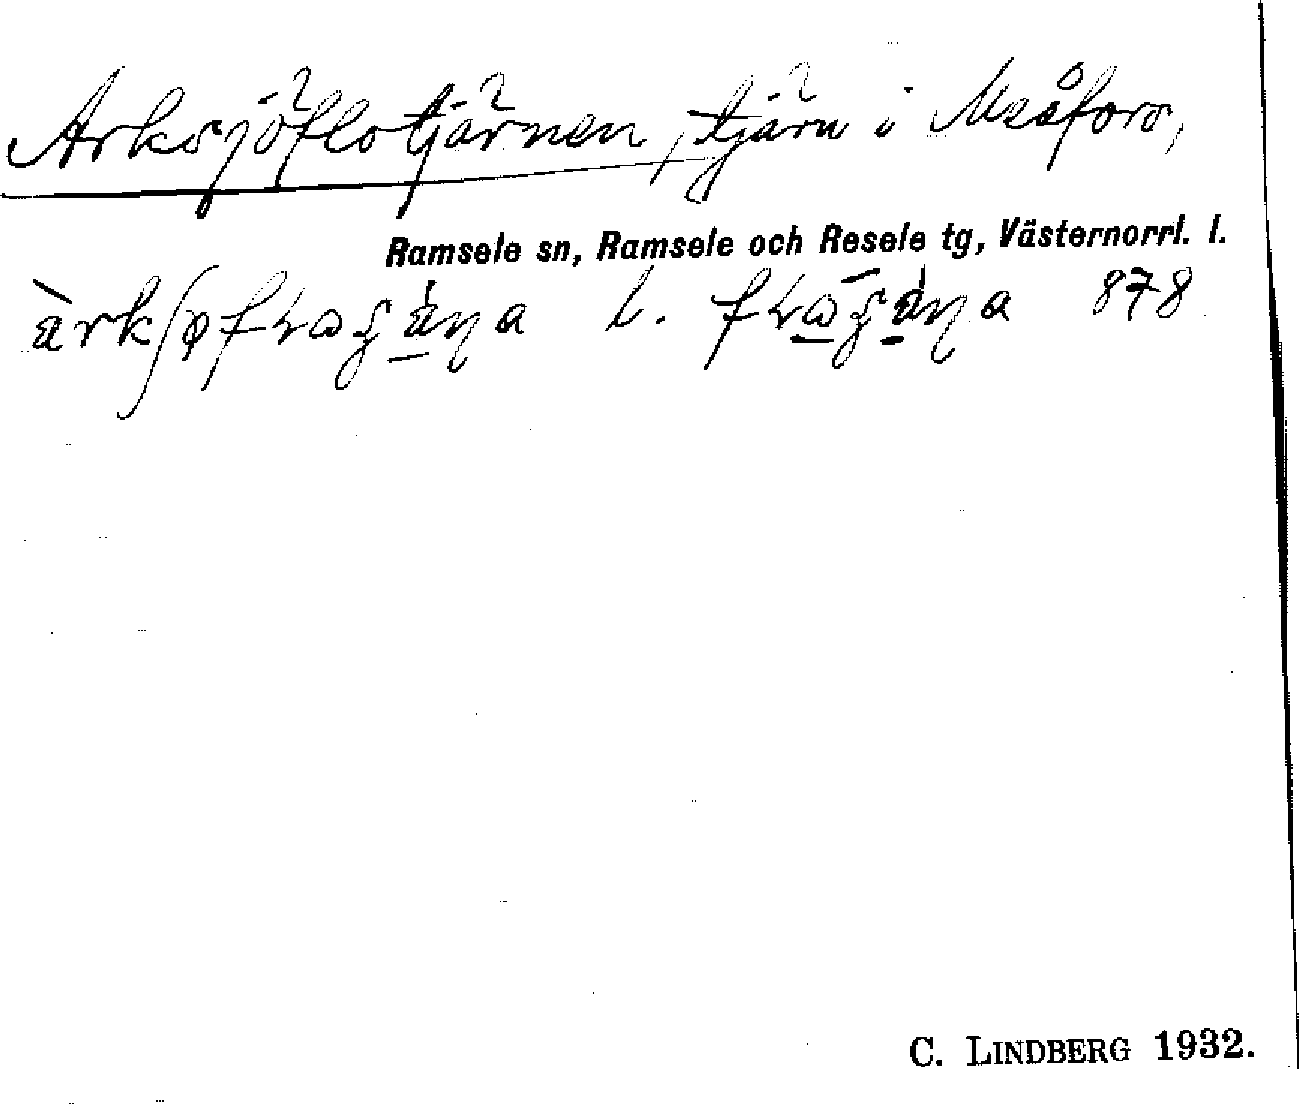 Arksjöflotjärnen, tjärn i Meåfors,
Ramsele sn, Ramsele och Resele tg, Västernorrl. l.
l. 878
C. LINDBERG 1932.